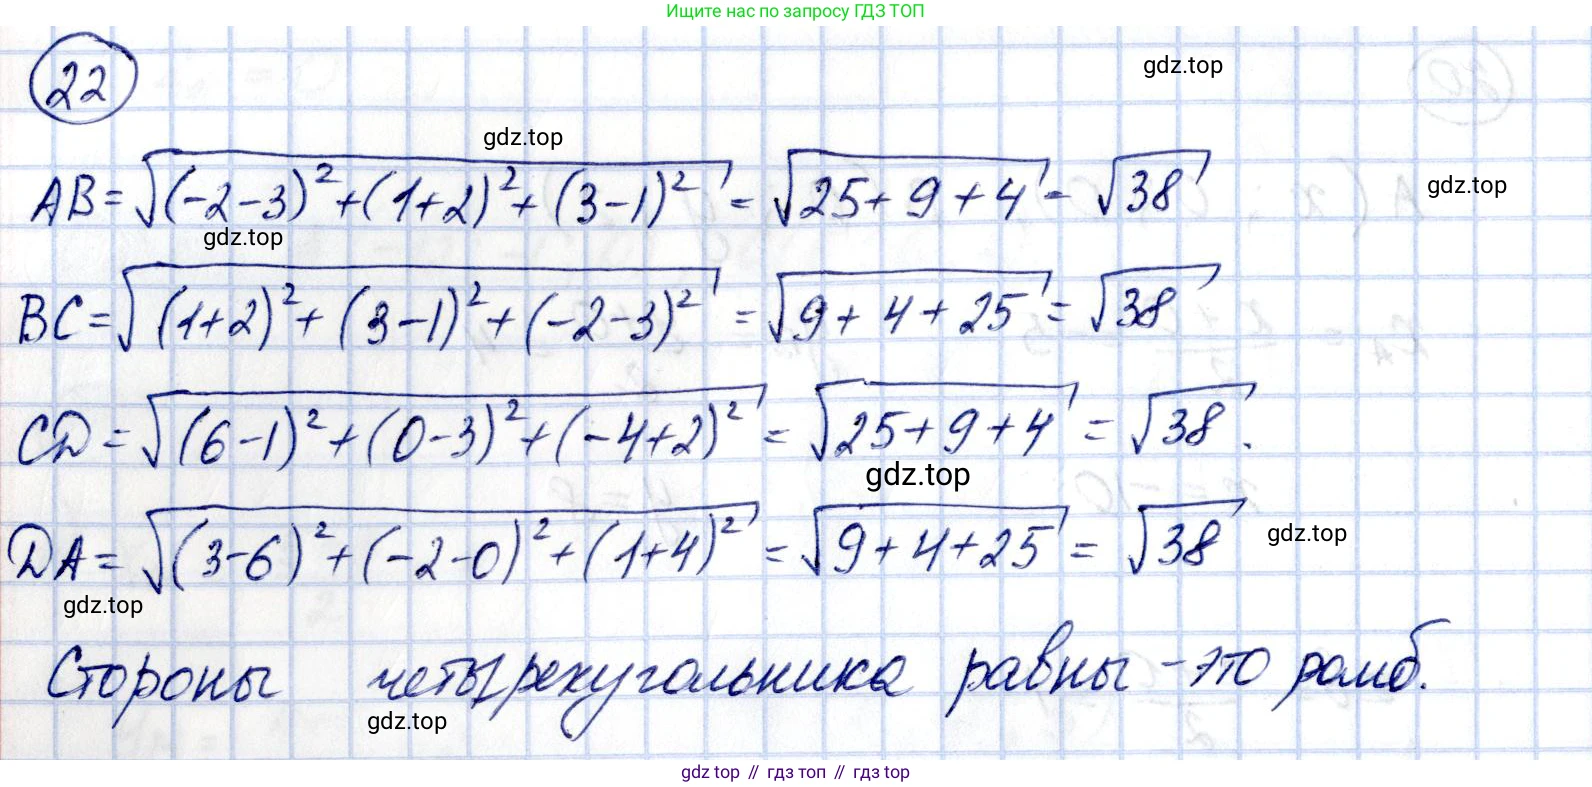 Ищите нас по запросу ГДЗ ТОП
22
gdz.top
gdz.top
AB = √((-2-3)² + (1+2)² + (3-1)²) = √(25 + 9 + 4) = √38
gdz.top
gdz.top
BC = √((1+2)² + (3-1)² + (-2-3)²) = √(9 + 4 + 25) = √38
CD = √((6-1)² + (0-3)² + (-4+2)²) = √(25 + 9 + 4) = √38.
gdz.top
DA = √((3-6)² + (-2-0)² + (1+4)²) = √(9 + 4 + 25) = √38
gdz.top
gdz.top
Стороны четырехугольника равны - это ромб.
gdz.top
gdz top // гдз топ // гдз top